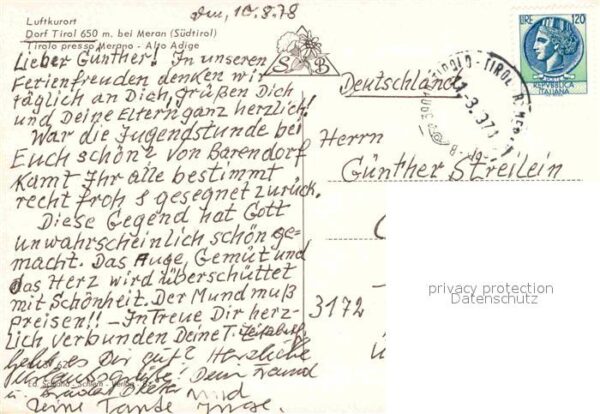 Luftkurort
Dorf Tirol 650 m. bei Meran (Südtirol)
Tirolo presso Merano - Alto Adige
den, 10.8.78
S B
LIRE 120
REPUBBLICA
ITALIANA
Lieber Günther! In unseren
Ferienfreuden denken wir
täglich an Dich, grüßen Dich
und Deine Eltern ganz herzlich!
War die Jugendstunde bei
Euch schön? Von Barendorf
kamt Ihr alle bestimmt
recht froh & gesegnet zurück.
Diese Gegend hat Gott
unwahrscheinlich schön ge-
macht. Das Auge, Gemüt und
das Herz wird überschüttet
mit Schönheit. Der Mund muß
preisen!! - In Treue Dir herz-
lich verbunden Deine T.
geht es Dir gut? Herzliche
Urlaubsgrüße! Dein Freund
u. Bruder und
Deine Tante
Deutschland
Herrn
Günther Streilein
3172
privacy protection
Datenschutz